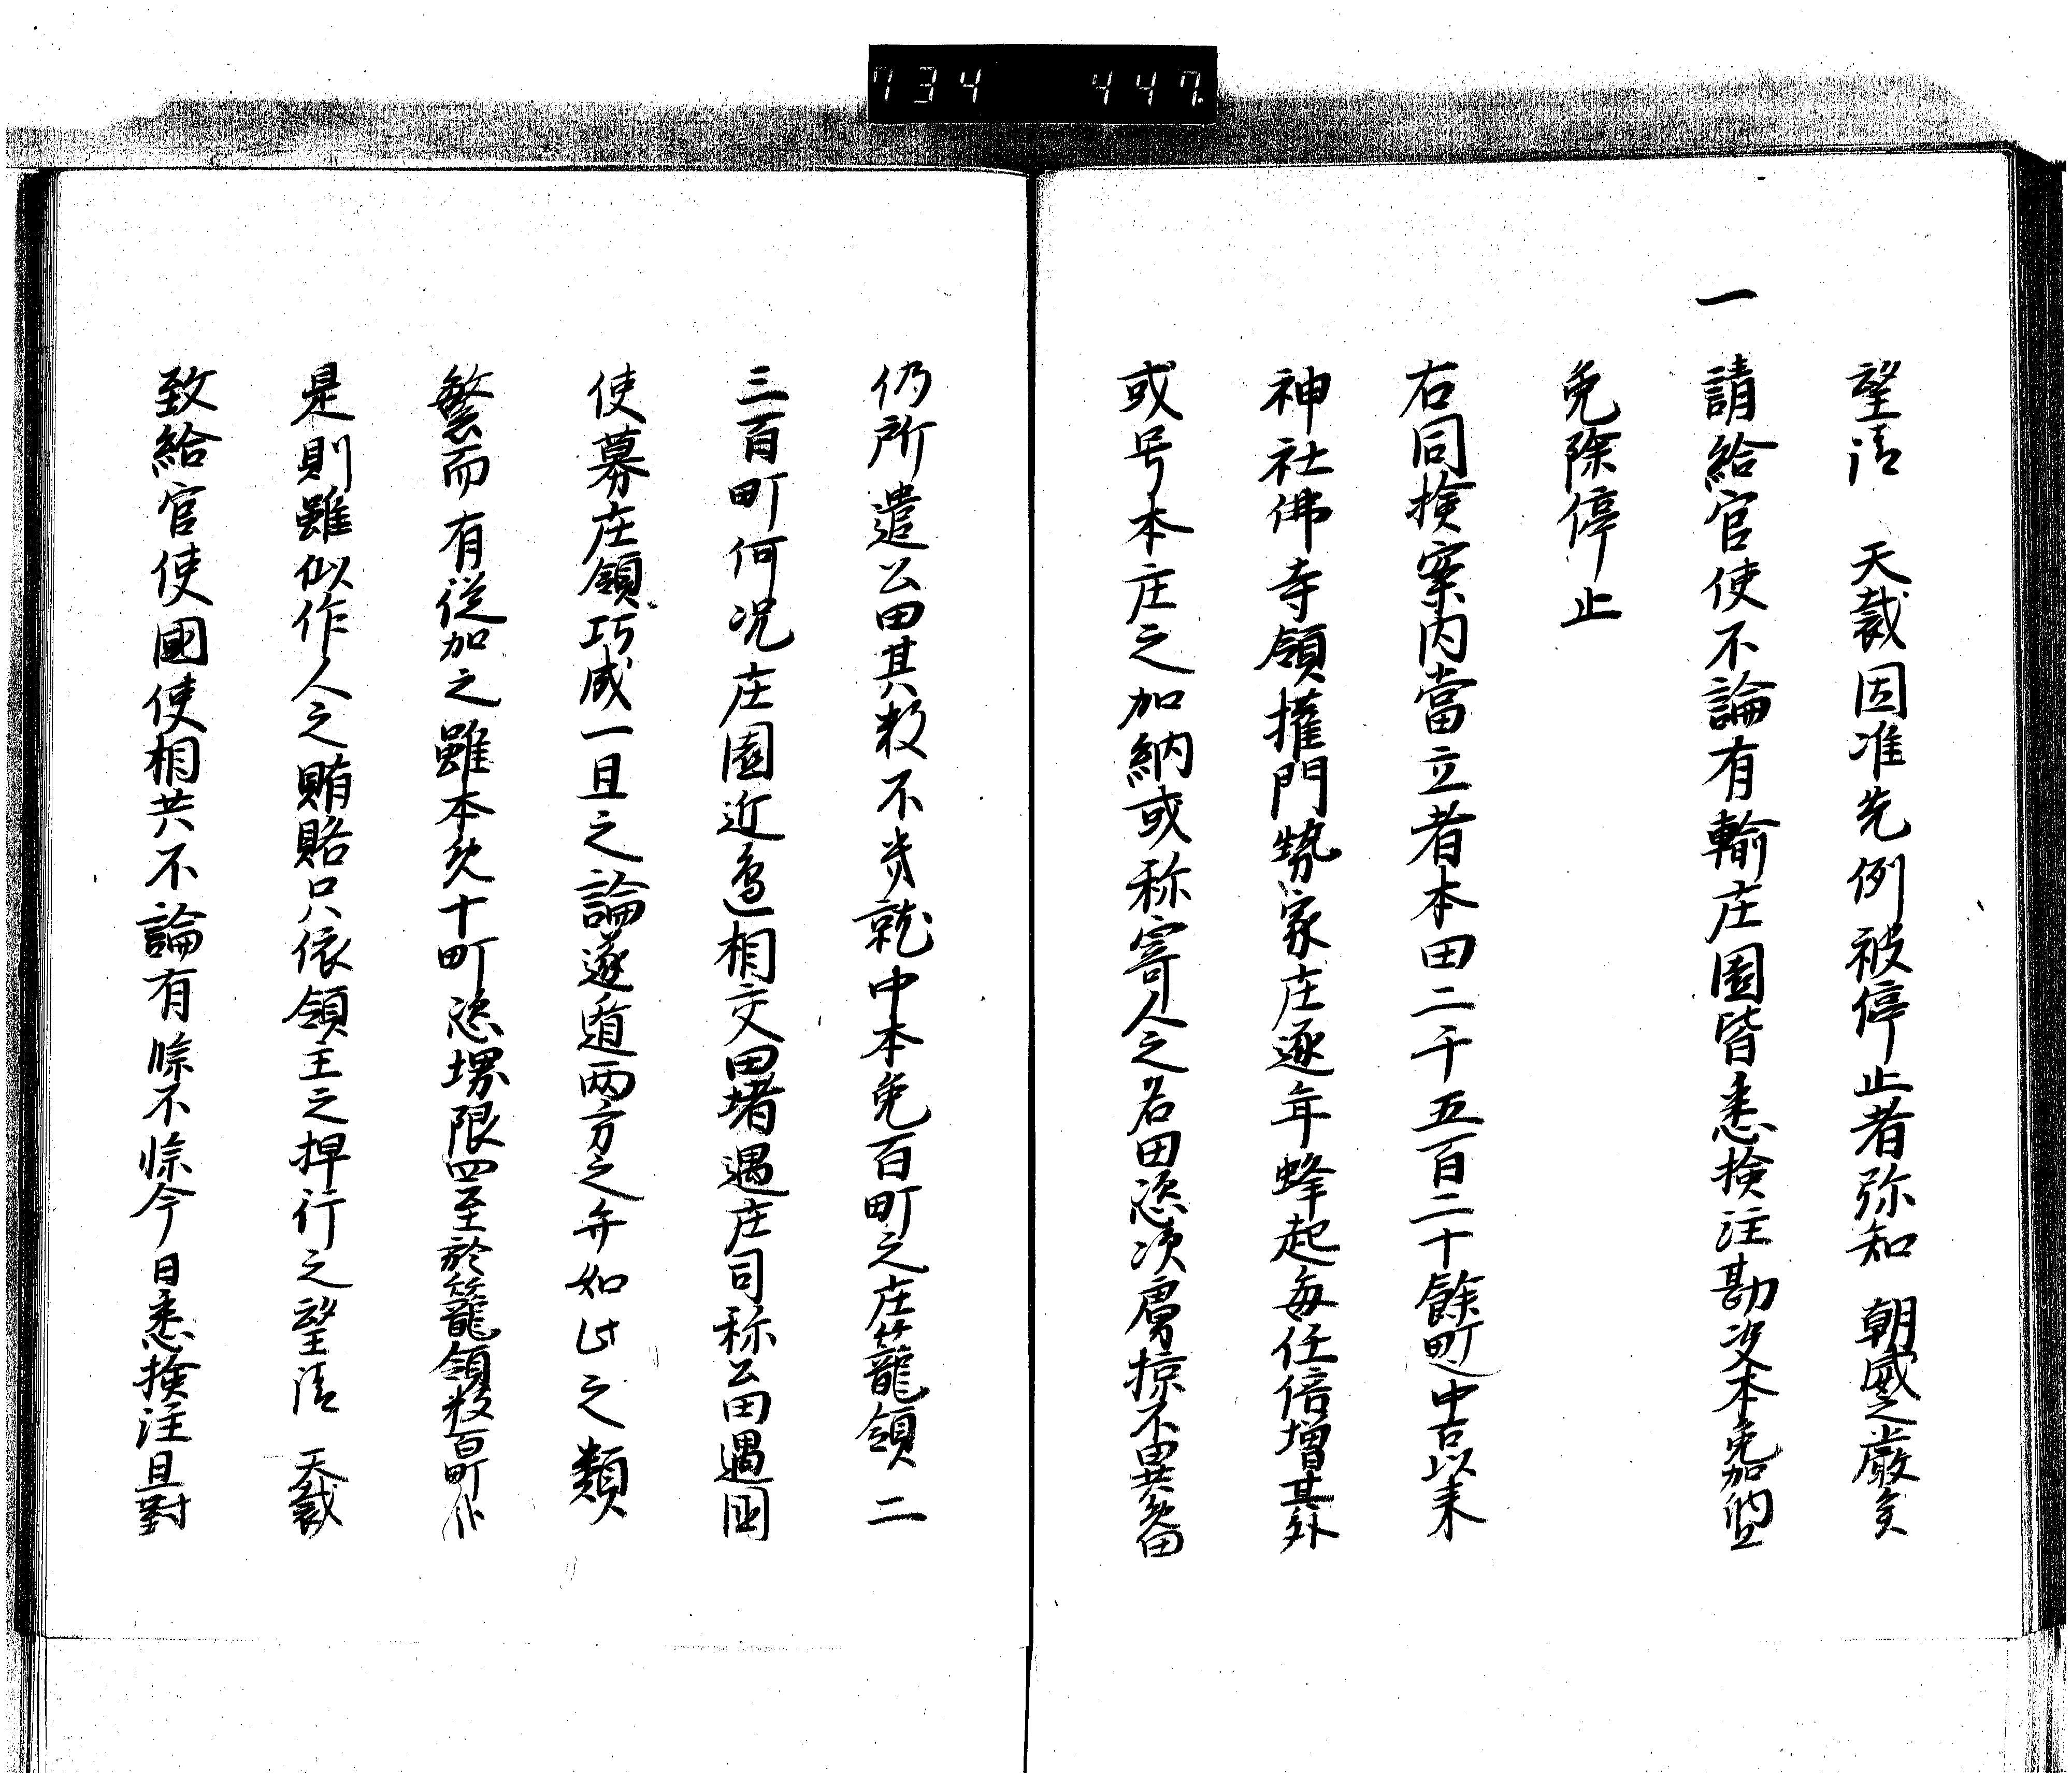 734 447
望請　天裁因准先例被停止者弥知　朝威之厳矣
一請給官使不論有輸庄園皆悉検注勘定本免加納且
免除停止
右同検案内當立者本田二千五百二十餘町也中古以来
神社佛寺領権門勢家庄逐年蜂起毎任倍増其外
或号本庄之加納或称寄人之名田恣凌虜掠不異
仍所遣公田其数不幾就中本免百町之庄籠領二
三百町何况庄園近邊相交田堵遇庄司称公田遇国
使募庄領巧成一旦之論遂遁両方之弁如此之類
繁而有從加之雖本免十町恣堺限四至於籠領数百町
是則雖似作人之賄賂只依領主之捍行之望請　天裁
致給官使國使相共不論有除不除今日悉検注且對